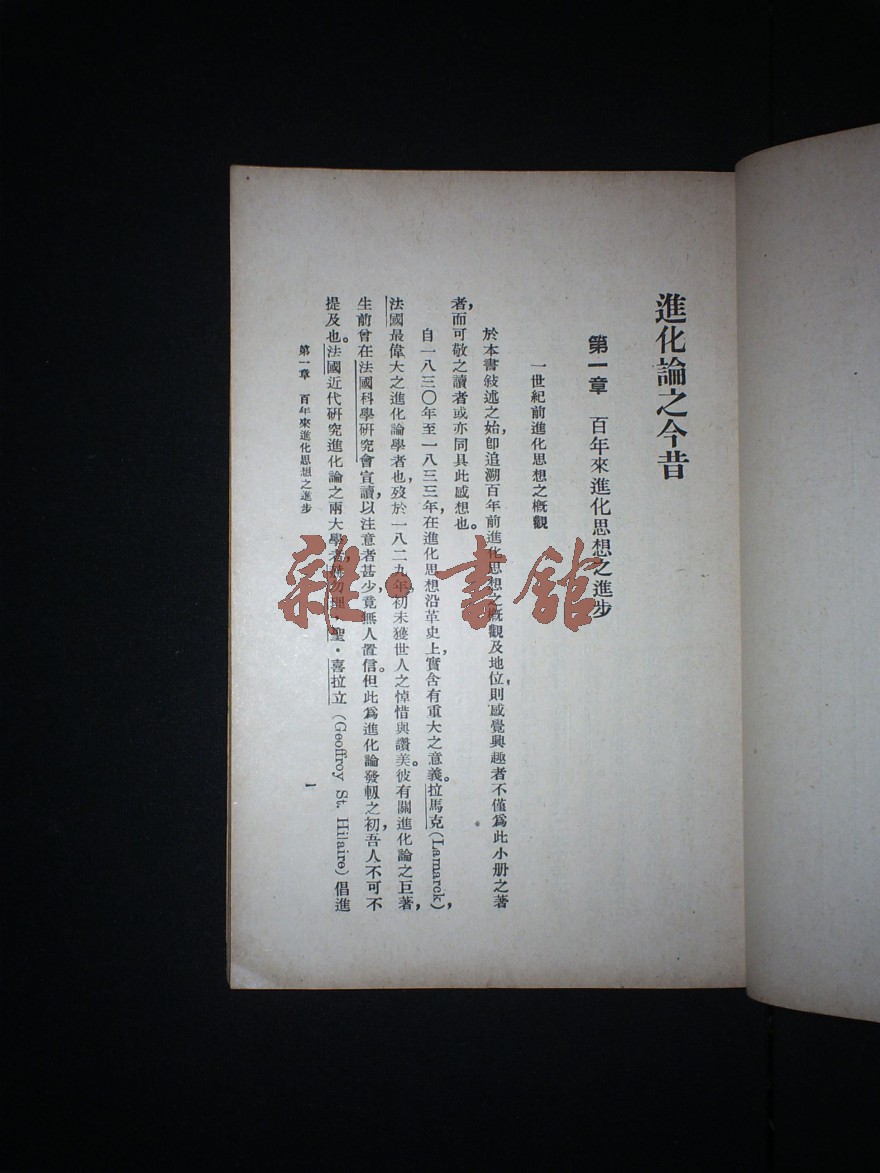 進化論之今昔
第一章 百年來進化思想之進步
一世紀前進化思想之槪觀
於本書敍述之始,卽追溯百年前進化思想之槪觀及地位,則感覺興趣者不僅爲此小册之著
者,而可敬之讀者或亦同具此感想也。
自一八三〇年至一八三三年,在進化思想沿革史上,實含有重大之意義。拉馬克(Lamarck),
法國最偉大之進化論學者也,歿於一八二九年,初未獲世人之悼惜與讚美。彼有關進化論之巨著,
生前曾在法國科學硏究會宣讀,以注意者甚少,竟無人置信。但此爲進化論發軔之初,吾人不可不
提及也。法國近代硏究進化論之兩大學者聖・喜拉立(Geoffroy St. Hilaire)倡進
第一章 百年來進化思想之進步
1
雜・書館